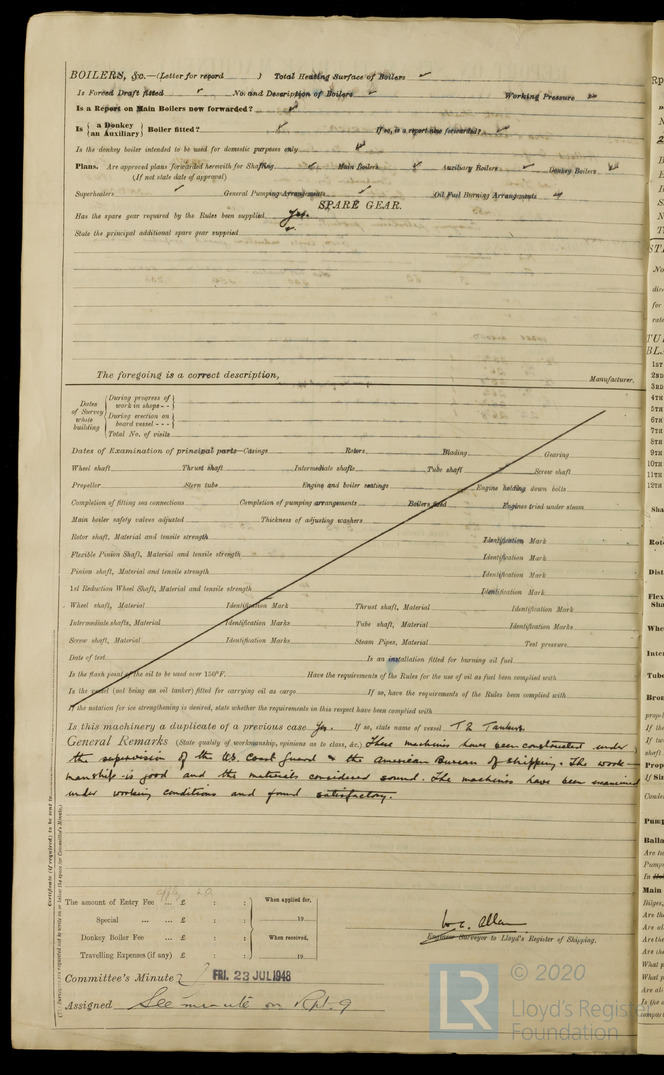 BOILERS, &c.—(Letter for record ) Total Heating Surface of Boilers ✓
Is Forced Draft fitted ✓ No. and Description of Boilers ✓ Working Pressure
Is a Report on Main Boilers now forwarded? ✓
Is { a Donkey / an Auxiliary } Boiler fitted? ✓ If so, is a report now forwarded?
Is the donkey boiler intended to be used for domestic purposes only
Plans. Are approved plans forwarded herewith for Shafting Main Boilers Auxiliary Boilers ✓ Donkey Boilers
(If not state date of approval)
Superheaters ✓ General Pumping Arrangements ✓ Oil Fuel Burning Arrangements
SPARE GEAR.
Has the spare gear required by the Rules been supplied Yes.
State the principal additional spare gear supplied
The foregoing is a correct description,
Manufacturer.
Dates of Survey while building
During progress of work in shops - -
During erection on board vessel - - -
Total No. of visits
Dates of Examination of principal parts—Casings Rotors Blading Gearing
Wheel shaft Thrust shaft Intermediate shafts Tube shaft Screw shaft
Propeller Stern tube Engine and boiler seatings Engine holding down bolts
Completion of fitting sea connections Completion of pumping arrangements Boilers fixed Engines tried under steam
Main boiler safety valves adjusted Thickness of adjusting washers
Rotor shaft, Material and tensile strength Identification Mark
Flexible Pinion Shaft, Material and tensile strength Identification Mark
Pinion shaft, Material and tensile strength Identification Mark
1st Reduction Wheel Shaft, Material and tensile strength Identification Mark
Wheel shaft, Material Identification Mark Thrust shaft, Material Identification Mark
Intermediate shafts, Material Identification Marks Tube shaft, Material Identification Marks
Screw shaft, Material Identification Marks Steam Pipes, Material Test pressure
Date of test Is an installation fitted for burning oil fuel
Is the flash point of the oil to be used over 150°F. Have the requirements of the Rules for the use of oil as fuel been complied with
Is the vessel (not being an oil tanker) fitted for carrying oil as cargo If so, have the requirements of the Rules been complied with
If the notation for ice strengthening is desired, state whether the requirements in this respect have been complied with
Is this machinery a duplicate of a previous case Yes. If so, state name of vessel T2 Tankers
General Remarks (State quality of workmanship, opinions as to class, &c.) These machines have been constructed under
the supervision of the U.S. Coast Guard & the American Bureau of Shipping. The work-
manship is good and the materials considered sound. The machines have been examined
under working conditions and found satisfactory.
The amount of Entry Fee ... £ : : When applied for,
Special ... ... £ : : 19
Donkey Boiler Fee ... £ : : When received,
Travelling Expenses (if any) £ : : 19
W. C. Allan
Engineer Surveyor to Lloyd's Register of Shipping.
Committee's Minute FRI. 23 JUL 1948
Assigned See minute on Rpt. 9
Certificate (if required) to be sent to
(The Surveyors are requested not to write on or below the space for Committee's Minute.)
LR
© 2020
Lloyd's Register
Foundation